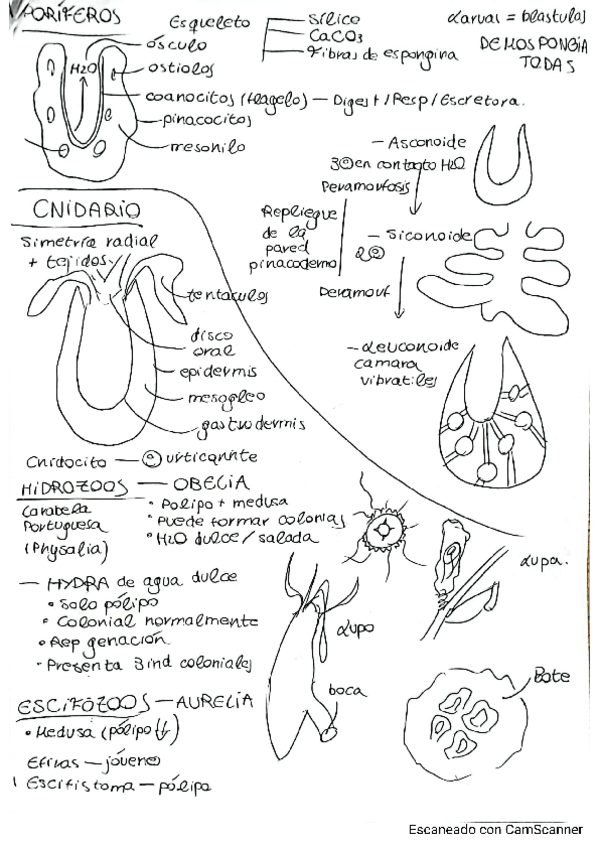 PORÍFEROS
Esqueleto
Sílico
CaCO3
Fibras de espongina
Larvas = blástulas
DEMOSPONGIA
TODAS
ósculo
H2O
ostiolos
coanocitos (flagelo) — Digest/Resp/Escretora.
pinacocitos
mesohilo
— Asconoide
en contacto H2O
Repliegue
de la
pared
pinacodermo
— Siconoide
— Leuconoide
camara
vibratiles
CNIDARIO
Simetría radial
+ tejidos
tentaculos
disco
oral
epidermis
mesogleo
gastrodermis
Cnidocito — urticante
HIDROZOOS — OBELIA
Carabela
Portuguesa
(Physalia)
• Polipo + medusa
• Puede formar colonias
• H2O dulce/salada
— HYDRA de agua dulce
• Solo pólipo
• Colonial normalmente
• Rep genación.
• Presenta 3 ind coloniales
Lupa.
Lupa
boca
Bote
ESCIFOZOOS — AURELIA
• Medusa (pólipo ↓↓)
Efiras — jóvenes
Escifistoma — pólipo
Escaneado con CamScanner